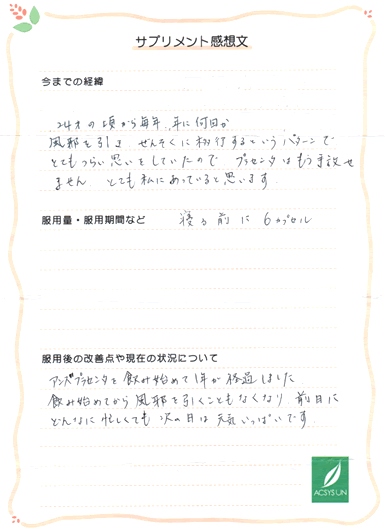 サプリメント感想文
今までの経緯
24才の頃から毎年、年に何回か
風邪を引き ぜんそくに移行するというパターンで
とてもつらい思いをしていたので プラセンタはもう手放せ
ません とても私にあっていると思います
服用量・服用期間など 寝る前に 6カプセル
服用後の改善点や現在の状況について
アンズプラセンタを飲み始めて1年が経過しました
飲み始めてから風邪を引くこともなくなり 前日に
どんなに忙しくても次の日は元気いっぱいです
ACSYSUN